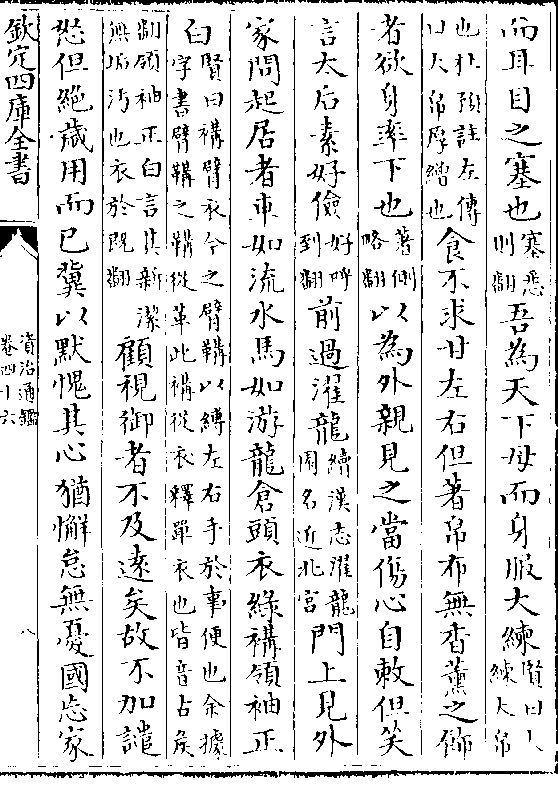 而耳目之塞也塞悉則翻吾為天下母而身服大練賢曰大練大帛
也杜預註左傳曰大帛厚繒也食不求甘左右但著帛布無香薰之飾
者欲身率下也著側略翻以為外親見之當傷心自敕但笑
言太后素好儉好呼到翻前過濯龍續漢志濯龍園名近北宮門上見外
家問起居者車如流水馬如游龍倉頭衣綠褠領袖正
白賢曰褠臂衣今之臂韝以縛左右手於事便也余據字書臂韝之韝從革此褠從衣釋單衣也皆音古侯
翻領袖正白言其新潔無垢汚也衣於既翻顧視御者不及遠矣故不加譴
怒但絶歲用而已冀以默愧其心猶懈怠無憂國忘家
欽定四庫全書
資治通鑑
卷四十六
八